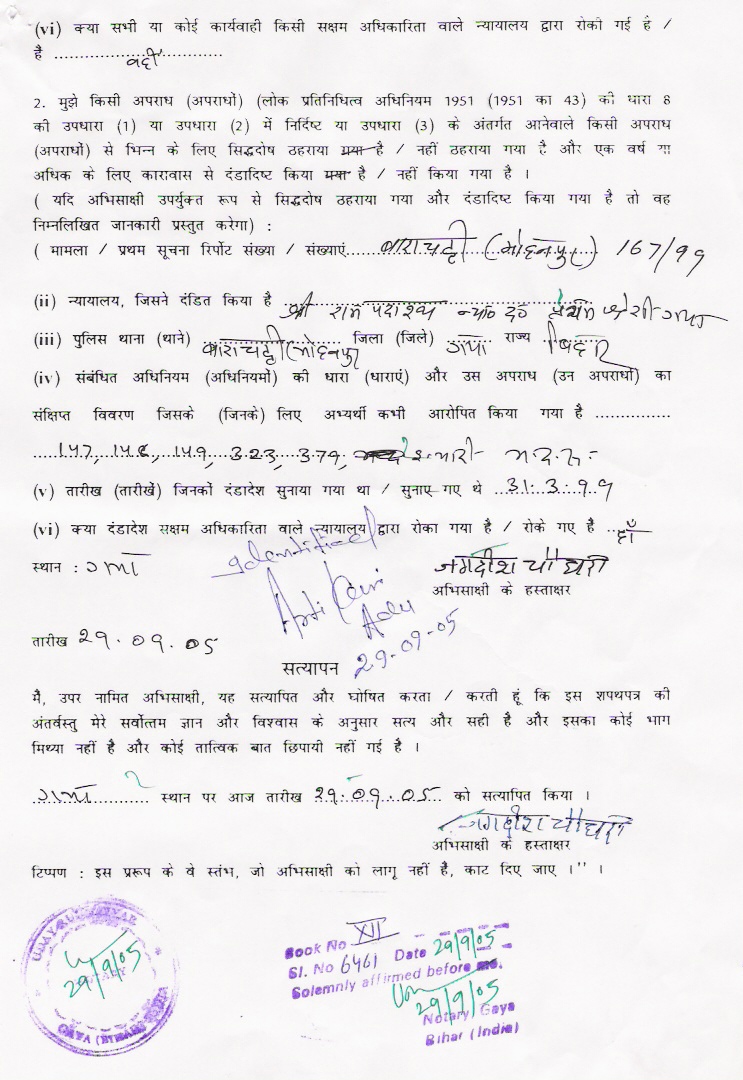 (vi) क्या सभी या कोई कार्यवाही किसी सक्षम अधिकारिता वाले न्यायालय द्वारा रोकी गई है /
है ..............................
2. मुझे किसी अपराध (अपराधों) (लोक प्रतिनिधित्व अधिनियम 1951 (1951 का 43) की धारा 8
की उपधारा (1) या उपधारा (2) में निर्दिष्ट या उपधारा (3) के अंतर्गत आनेवाले किसी अपराध
(अपराधों) से भिन्न के लिए सिद्धदोष ठहराया गया है / नहीं ठहराया गया है और एक वर्ष या
अधिक के लिए कारावास से दंडादिष्ट किया गया है / नहीं किया गया है ।
( यदि अभिसाक्षी उपर्युक्त रूप से सिद्धदोष ठहराया गया और दंडादिष्ट किया गया है तो वह
निम्नलिखित जानकारी प्रस्तुत करेगा) :
( मामला / प्रथम सूचना रिर्पोट संख्या / संख्याएं..... बाराचट्टी (मोहनपुर) 167/99
(ii) न्यायालय, जिसने दंडित किया है श्री राम
(iii) पुलिस थाना (थाने) बाराचट्टी (मोहनपुर) जिला (जिले) गया राज्य बिहार
(iv) संबंधित अधिनियम (अधिनियमों) की धारा (धाराएं) और उस अपराध (उन अपराधों) का
संक्षिप्त विवरण जिसके (जिनके) लिए अभ्यर्थी कभी आरोपित किया गया है ...............
147, 148, 149, 323, 379,
(v) तारीख (तारीखें) जिनकों दंडादेश सुनाया गया था / सुनाए गए थे ..31.3.99
(vi) क्या दंडादेश सक्षम अधिकारिता वाले न्यायालय द्वारा रोका गया है / रोके गए है ...हाँ
स्थान : गया
Identified
जगदीश चौधरी
अभिसाक्षी के हस्ताक्षर
Adv
29-09-05
तारीख 29.09.05
सत्यापन
मै, उपर नामित अभिसाक्षी, यह सत्यापित और घोषित करता / करती हूं कि इस शपथपत्र की
अंतर्वस्तु मेरे सर्वोत्तम ज्ञान और विश्वास के अनुसार सत्य और सही है और इसका कोई भाग
मिथ्या नहीं है और कोई तात्विक बात छिपायी नहीं गई है ।
गया स्थान पर आज तारीख 29.09.05 को सत्यापित किया ।
जगदीश चौधरी
अभिसाक्षी के हस्ताक्षर
टिप्पण : इस प्ररूप के वे स्तंभ, जो अभिसाक्षी को लागू नहीं है, काट दिए जाए ।'' ।
Book No XII
Sl. No 6461 Date 29/9/05
Solemnly affirmed before me.
29/9/05
Notary Gaya
Bihar (India)
29/9/05
NOTARY
GAYA (BIHAR)